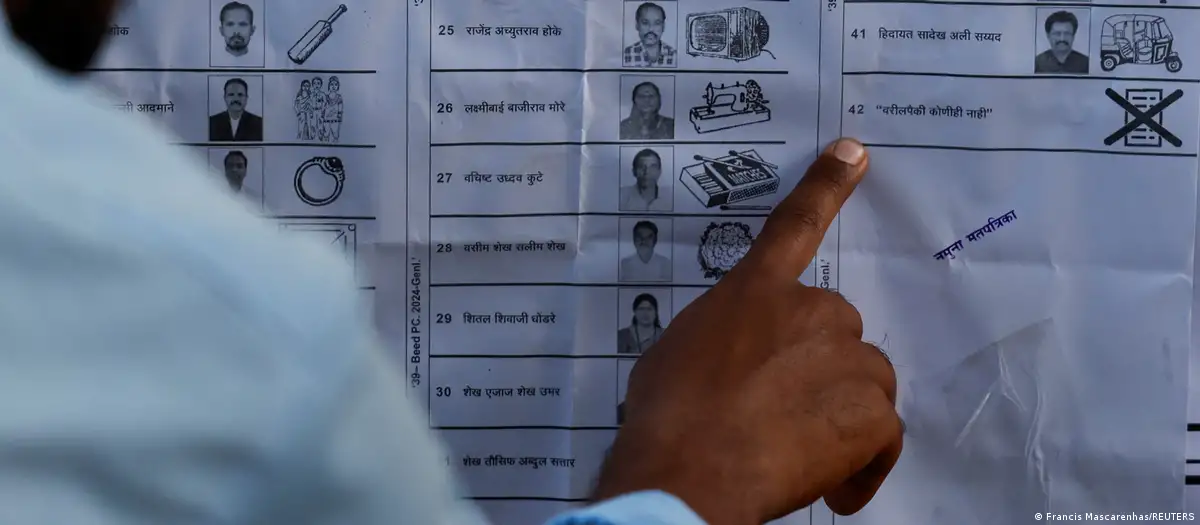 25 राजेंद्र अच्युतराव होके
26 लक्ष्मीबाई बाजीराव मोरे
27 वचिष्ट उध्दव कुटे
28 वसीम शेख सलीम शेख
29 शितल शिवाजी धोंडरे
30 शेख एजाज शेख उमर
शेख तौसिफ अब्दुल सत्तार
'39– Beed PC. 2024-Genl.'
MATCHES
41 हिदायत सादेख अली सय्यद
42 "वरीलपैकी कोणीही नाही"
Genl.'
नमुना मतपत्रिका
© Francis Mascarenhas/REUTERS